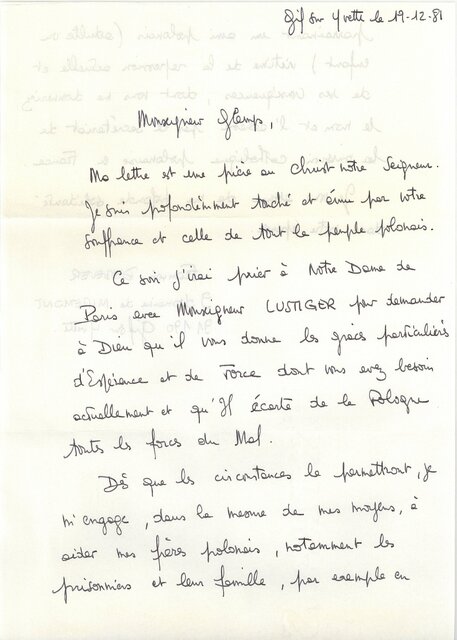 Gif sur Yvette le 19-12-81
Monseigneur Glemp,
Ma lettre est une prière au Christ notre Seigneur.
Je suis profondément touché et ému par votre
souffrance et celle de tout le peuple polonais.
Ce soir j'irai prier à Notre Dame de
Paris avec Monseigneur LUSTIGER pour demander
à Dieu qu'il vous donne les grâces particulières
d'Espérance et de Force dont vous avez besoin
actuellement et qu'Il écarte de la Pologne
toutes les forces du Mal.
Dès que les circonstances le permettront, je
m'engage, dans la mesure de mes moyens, à
aider mes frères polonais, notamment les
prisonniers et leur famille, par exemple en